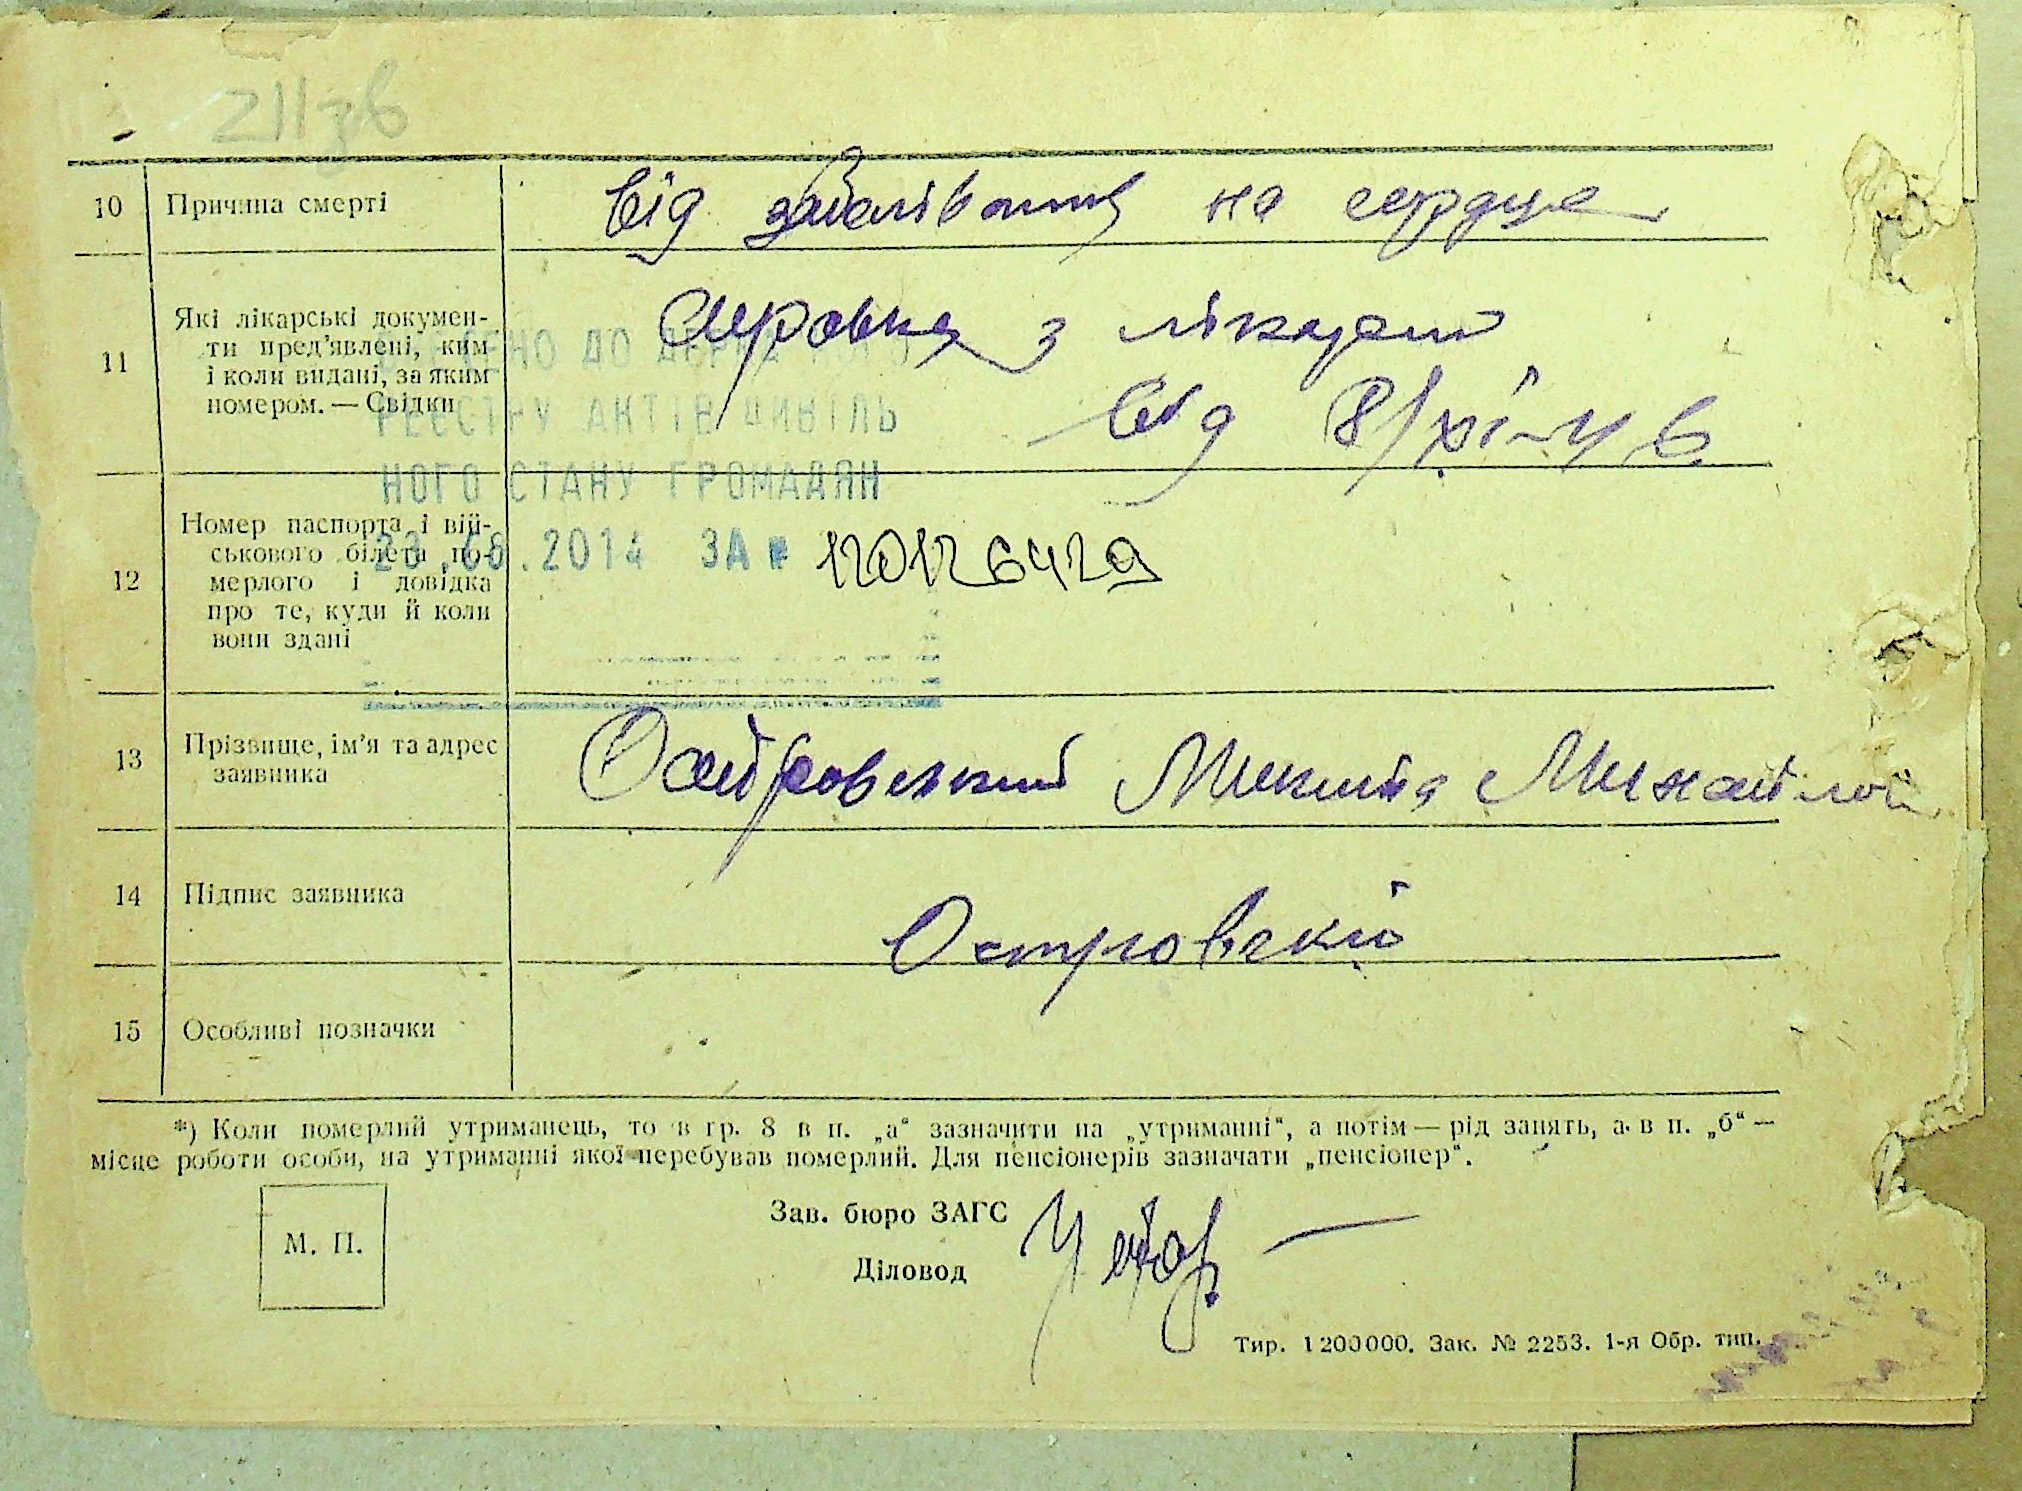 211зв
10 Причина смерті від заболівання на сердце
11 Які лікарські докумен-
ти пред'явлені, ким
і коли видані, за яким
номером. — Свідки
Справка з лікарні
від
ДО
РЕЄСТРУ АКТІВ ЦИВІЛЬ
НОГО СТАНУ ГРОМАДЯН
.2014 ЗА № 120126429
12 Номер паспорта і вій-
ськового білета по-
мерлого і довідка
про те, куди й коли
вони здані
13 Прізвище, ім'я та адрес
заявника
Островський Микита Михайлов
14 Підпис заявника Островский
15 Особливі позначки
*) Коли померлий утриманець, то в гр. 8 в п. „а“ зазначити на „утриманні“, а потім — рід занять, а в п. „б“ —
місце роботи особи, на утриманні якої перебував померлий. Для пенсіонерів зазначати „пенсіонер“.
М. П.
Зав. бюро ЗАГС
Діловод
Тир. 1200000. Зак. № 2253. 1-я Обр. тип.